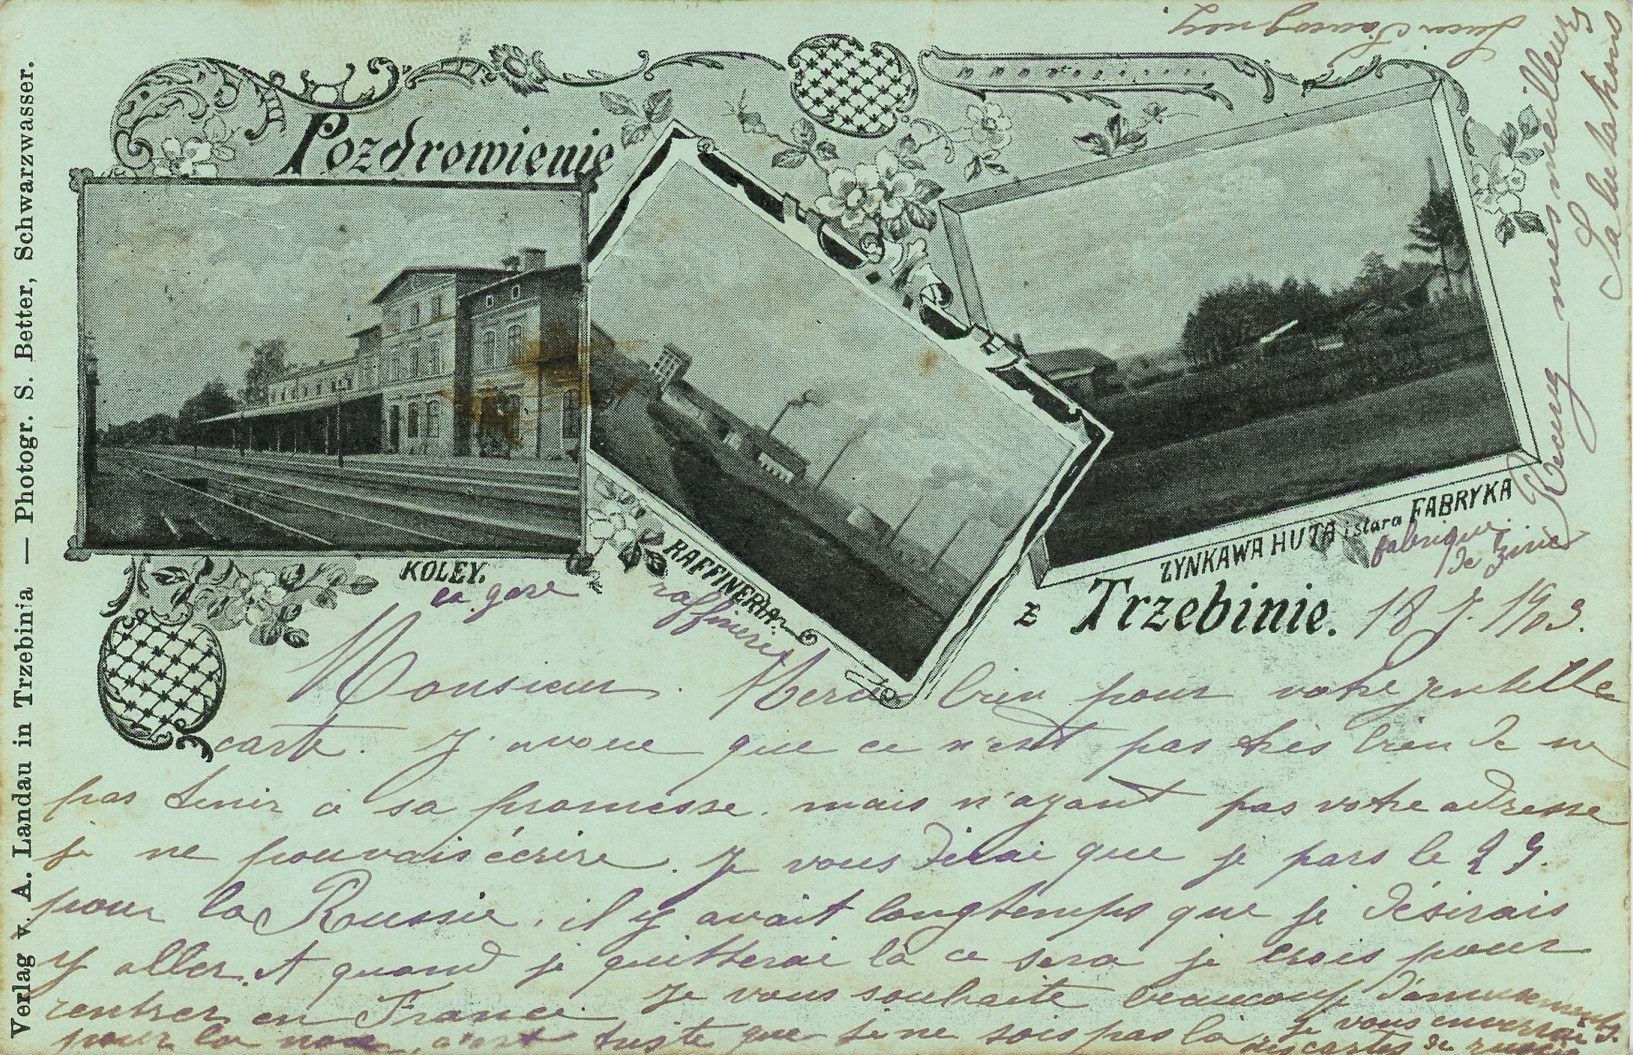 Pozdrowienie
KOLEY.
la gare
RAFFINERIA.
raffinerie
ZYNKAWA HUTA i stara FABRYKA
fabrique
de zinc
z Trzebinie.
18 7. 1903.
Monsieur. Merci bien pour votre gentille
carte. J'avoue que ce n'est pas très bien de ne
pas tenir à sa promesse. mais n'ayant pas votre adresse
je ne pouvais écrire. Je vous dirai que je pars le 29.
pour la Russie, il y avait longtemps que je désirais
y aller. Et quand je quitterai là ce sera je crois pour
rentrer en France. Je vous souhaite beaucoup d'amusements
pour la noce, c'est triste que je ne sois pas là
Je vous enverrai
des cartes de Russie
Recevez mes meilleures
Salutations
Verlag v. A. Landau in Trzebinia — Photogr. S. Better, Schwarzwasser.